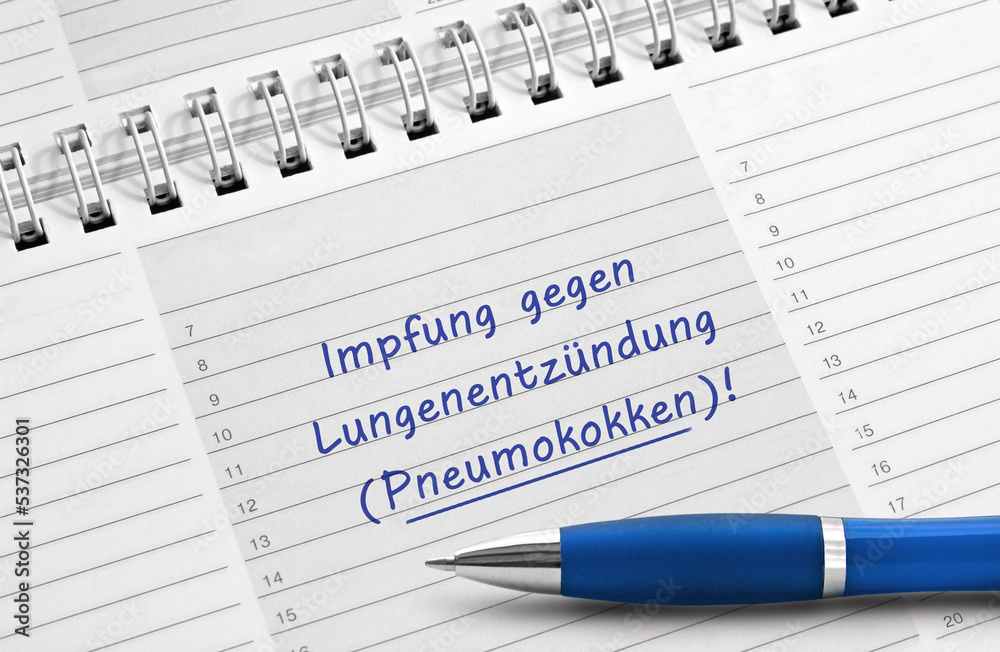 Impfung gegen
Lungenentzündung
(Pneumokokken)!
7
8
9
10
11
12
13
14
15
16
7
8
9
10
11
12
13
14
15
16
17
20
Adobe Stock | #537326301